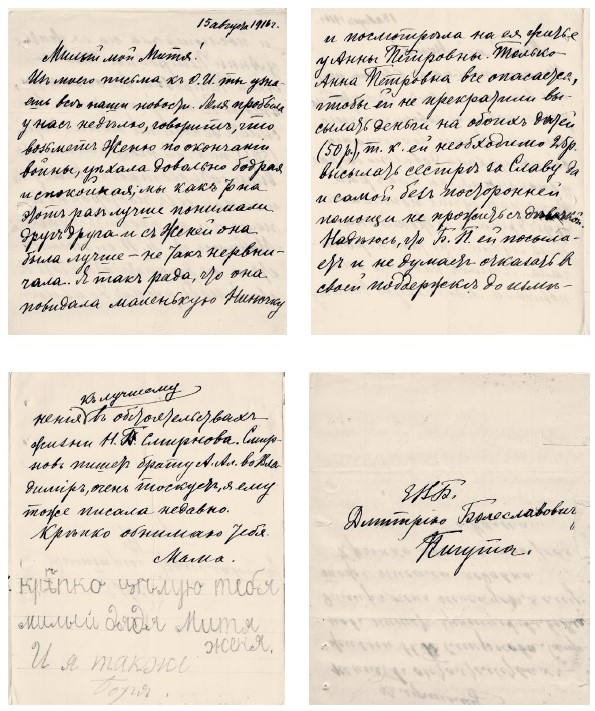 15 августа 1916 г.
Милый мой Митя!
Изъ моего письма къ О.И. ты узна-
ешь всѣ наши новости. Леля пробыла
у насъ недѣлю, говоритъ, что
возьметъ Женю по окончаніи
войны, уѣхала довольно бодрая
и спокойная; мы какъ то на
этотъ разъ лучше понимали
другъ друга и съ Женей она
была лучше – не такъ нервни-
чала. Я такъ рада, что она
повидала маленькую Ниночку
и посмотрѣла на ея житье
у Анны Петровны. Только
Анна Петровна все опасается,
чтобы ей не прекратили вы-
сылать деньги на обоихъ дѣтей
(50 р.), т. к. ей необходимо 25 р.
высылать сестрѣ за Славу да
и самой безъ посторонней
помощи не прожить съ
Надѣюсь, что Б. П. ей посыла-
етъ и не думаетъ отказать въ
своей поддержкѣ до измѣ-
къ лучшему
ненія въ обстоятельствахъ
жизни Н. Смирнова. Смир-
новъ пишетъ брату А. Ал. во Вла-
диміръ, очень тоскуетъ, я ему
тоже писала недавно.
Крѣпко обнимаю тебя.
Мама.
крѣпко цѣлую тебя
милый дядя Митя
Женя.
И я также
Боря.
Е.В.Б.
Дмитрію Болеславовичу
Пигута.